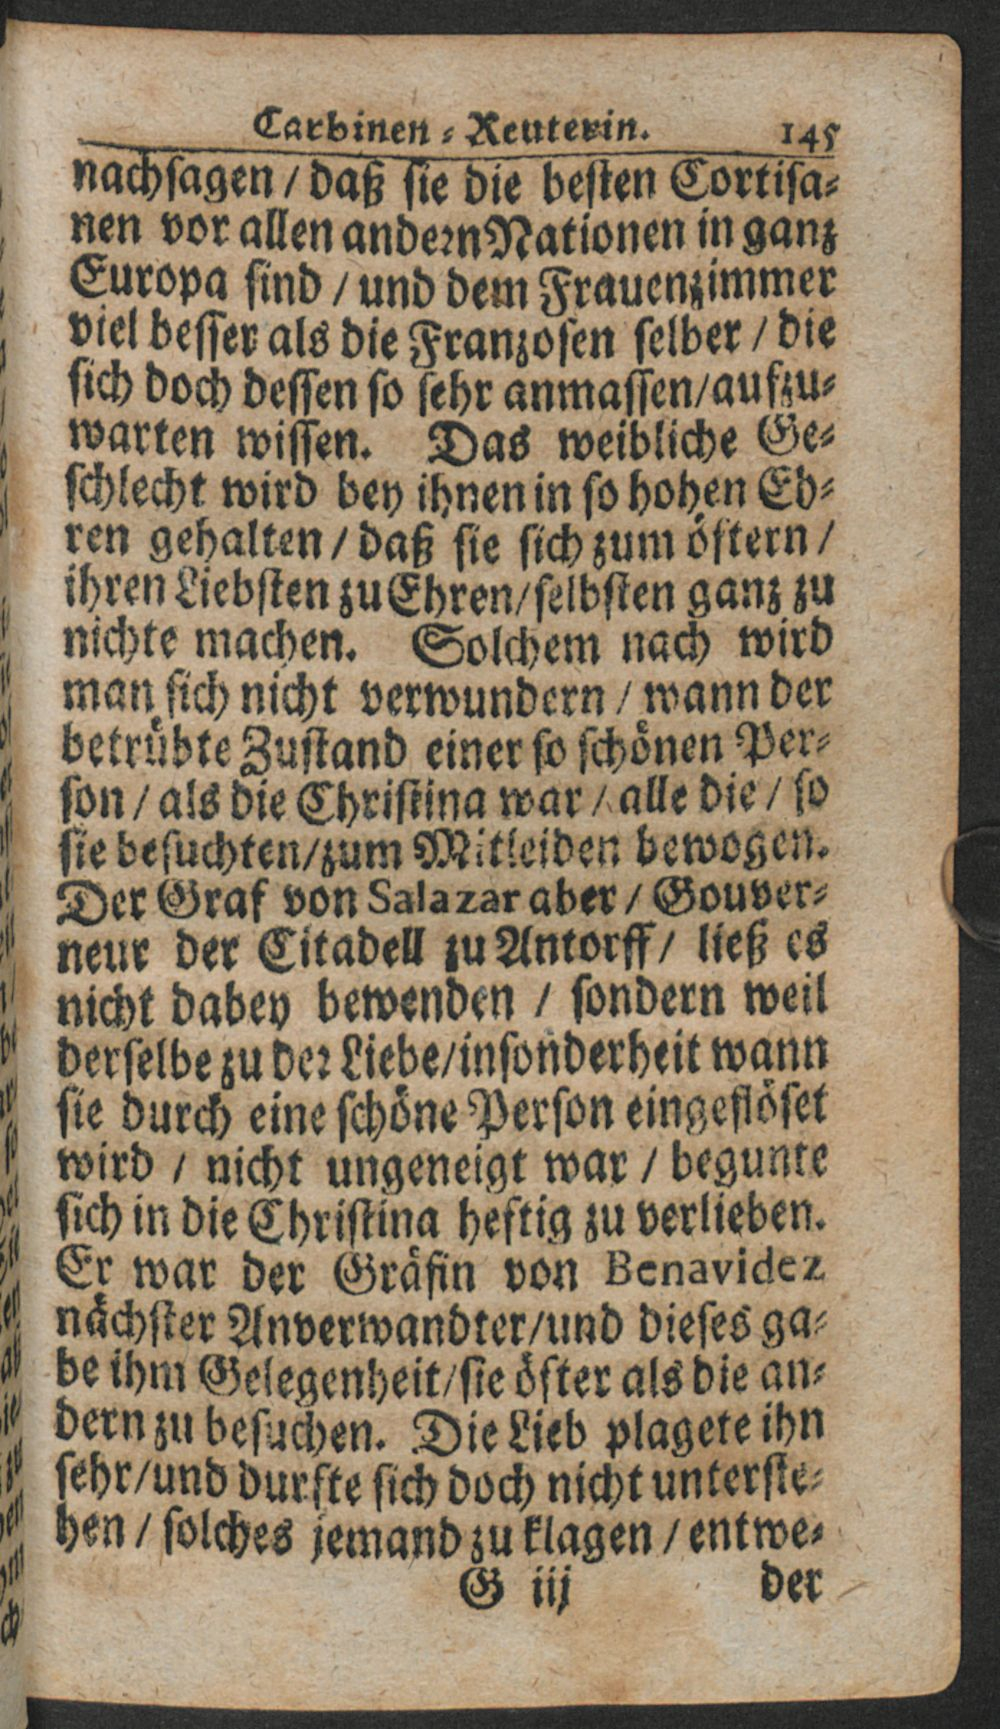 Carbinen-Reuterin. 145
nachsagen / daß sie die besten Cortisa-
nen vor allen andern Nationen in ganz
Europa sind / und dem Frauenzimmer
viel besser als die Franzosen selber / die
sich doch dessen so sehr anmassen / aufzu-
warten wissen. Das weibliche Ge-
schlecht wird bey ihnen in so hohen Eh-
ren gehalten / daß sie sich zum öftern /
ihren Liebsten zu Ehren / selbsten ganz zu
nichte machen. Solchem nach wird
man sich nicht verwundern / wann der
betrübte Zustand einer so schönen Per-
son / als die Christina war / alle die / so
sie besuchten / zum Mitleiden bewogen.
Der Graf von Salazar aber / Gouver-
neur der Citadell zu Antorff / ließ es
nicht dabey bewenden / sondern weil
derselbe zu der Liebe / insonderheit wann
sie durch eine schöne Person eingeflöset
wird / nicht ungeneigt war / begunte
sich in die Christina heftig zu verlieben.
Er war der Gräfin von Benavidez
nächster Anverwandter / und dieses ga-
be ihm Gelegenheit / sie öfter als die an-
dern zu besuchen. Die Lieb plagete ihn
sehr / und durfte sich doch nicht unterste-
hen / solches jemand zu klagen / entwe-
G iij der